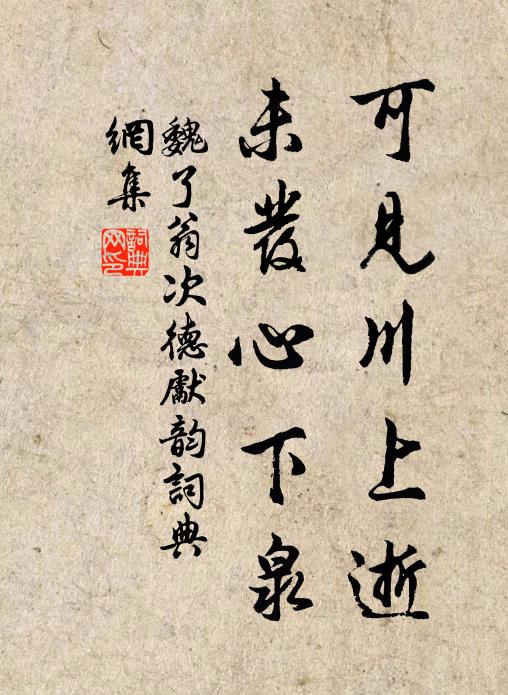 可見川上逝
未發心下泉
魏了翁次德獻韵詞典
網集
詞典
网印